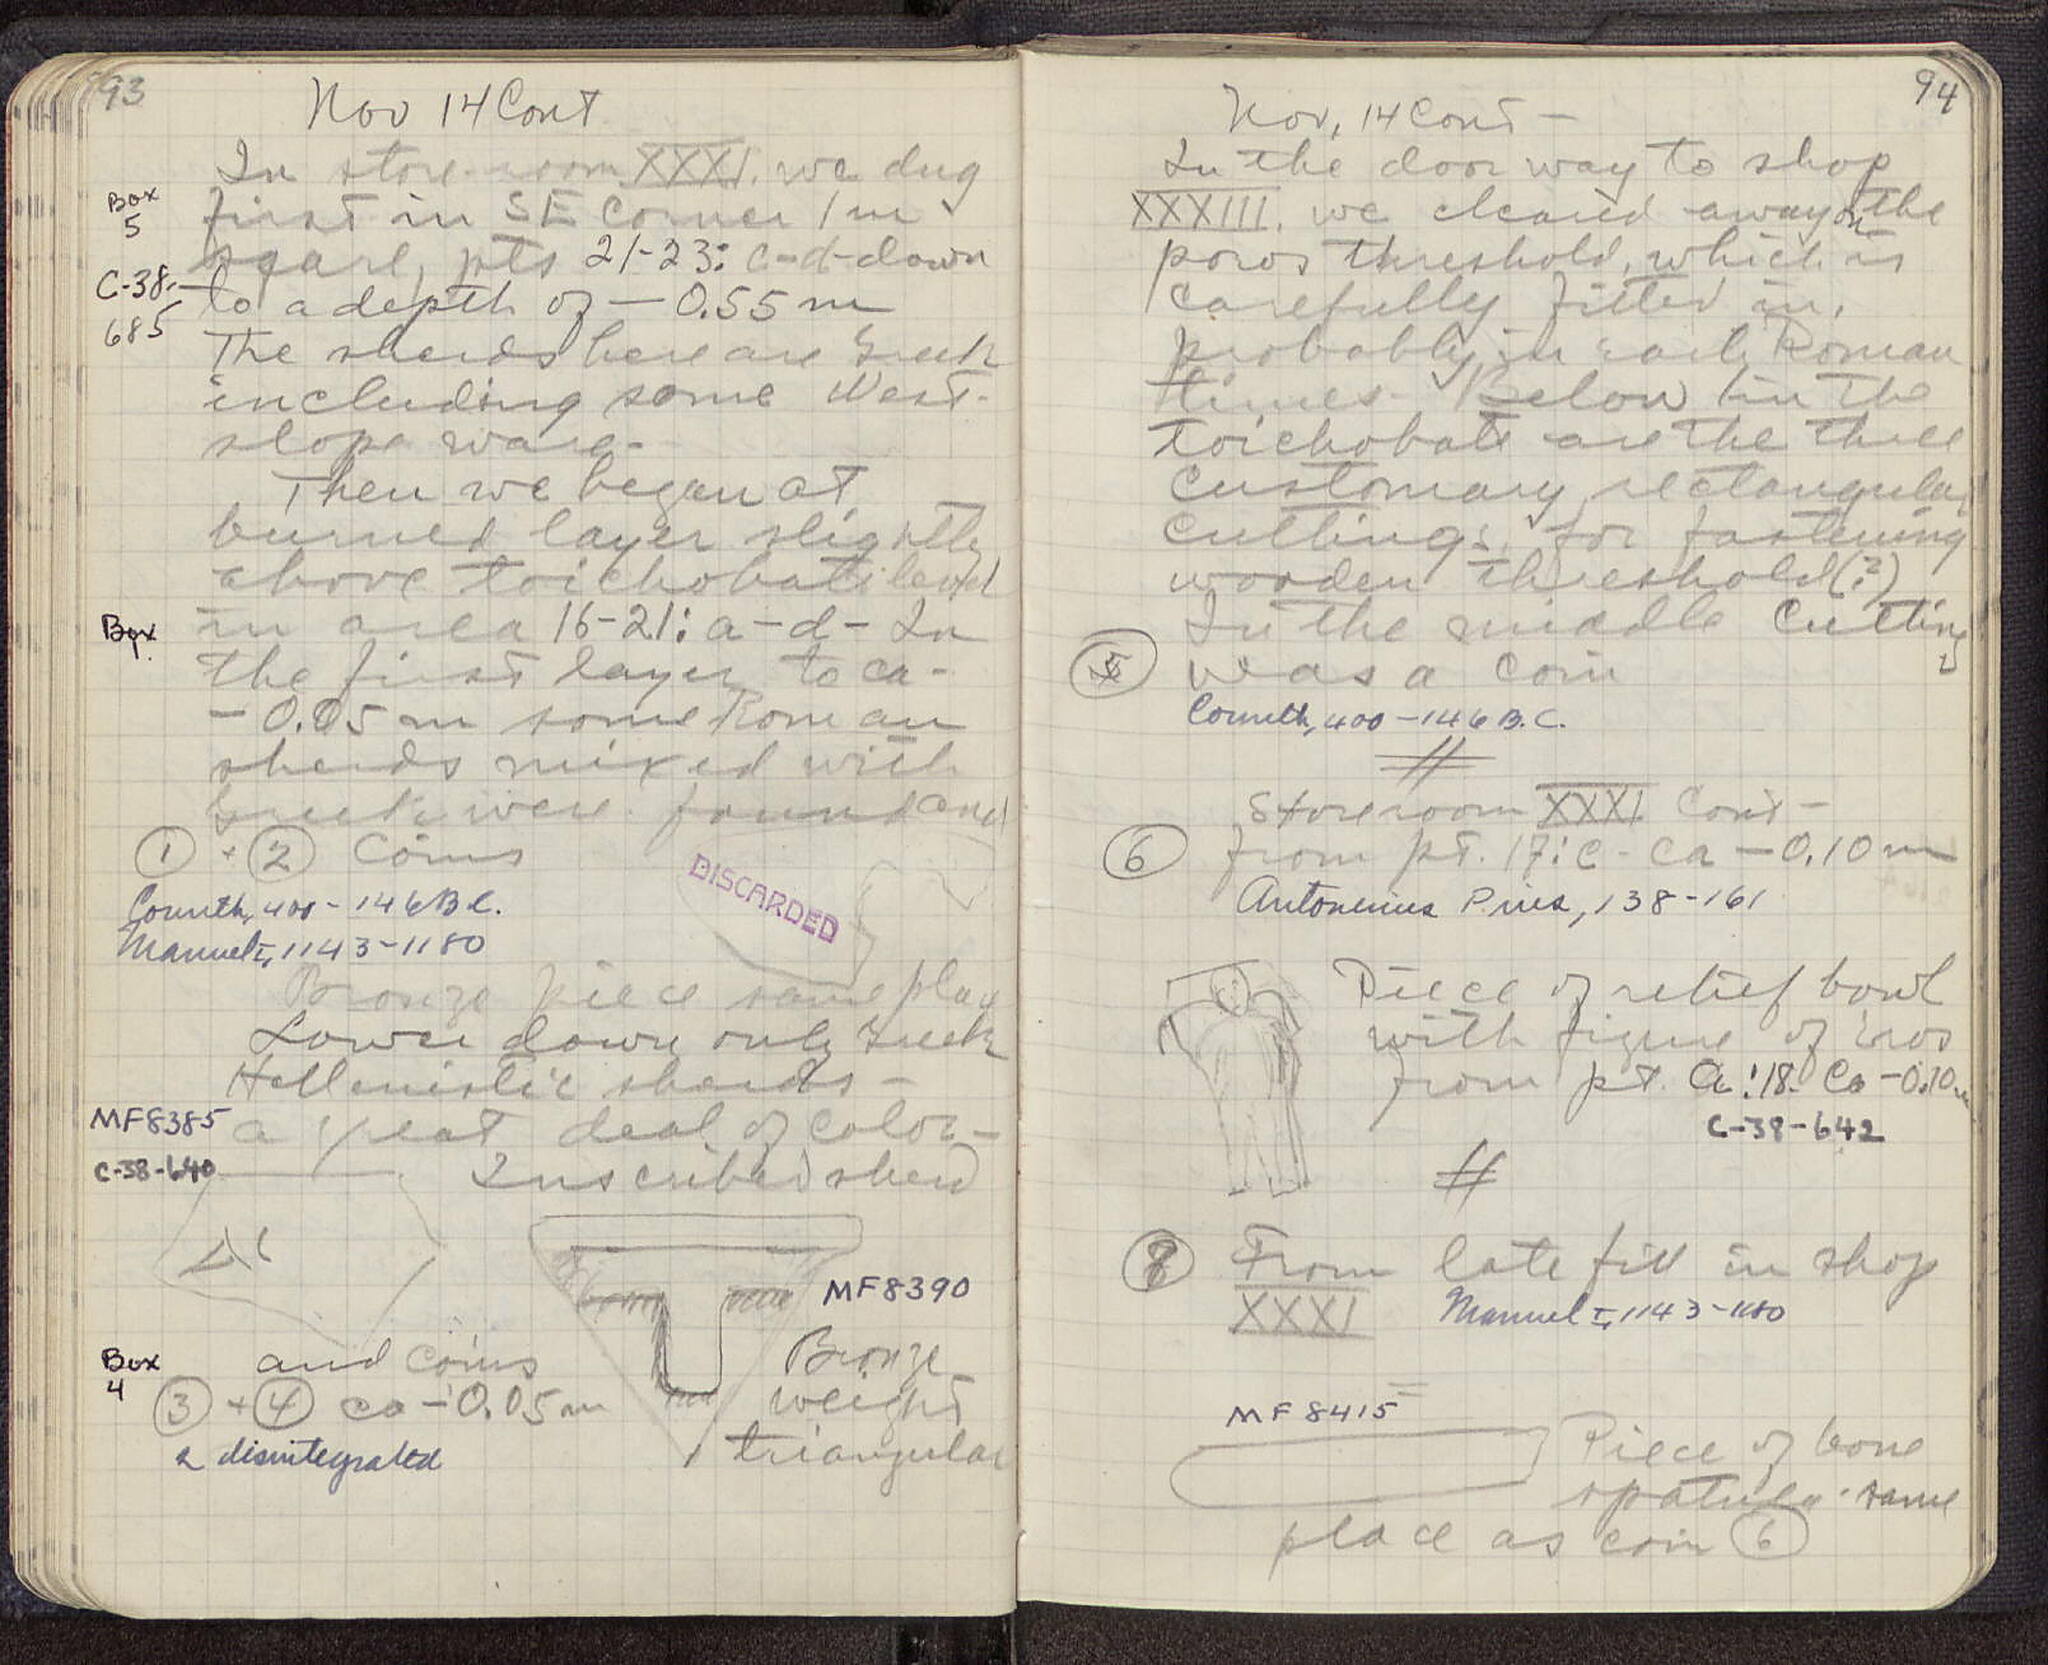 93
Nov 14 Cont
In store-room XXXI. we dug
Box
5
first in SE Corner 1 m
sqare, pts 21-23: c-d- down
C-38-
685
to a depth of - 0.55 m
The sherds here are Greek
including some West-
slope ware-
Then we began at
burned layer slightly
above toichobate level
Box
in area 16-21: a-d- In
the first layer to ca-
- 0.05 m some Roman
sherds mixed with
Greek were found and
1 + 2 Coins
DISCARDED
Corinth, 400-146 B.C.
Manuel I, 1143-1180
Bronze piece same place
Lower down only Greek
Hellenistic sherds -
MF8385
a great deal of color-
C-38-640
Inscribed sherd
MF8390
Box
4
and coins
Bronze
3 + 4 ca - 0.05 m
weight
2 disintegrated
triangular
94
Nov, 14 Cont -
In the door way to shop
XXXIII. we cleared away on the
poros threshold, which is
carefully fitted in,
probably in early Roman
times. Below in the
toichobate are the three
customary rectangular
cuttings for fastening
wooden threshold (?)
In the middle cutting
5 was a coin
Corinth, 400-146 B.C.
Storeroom XXXI Cont-
6 from pt. 17:c - ca - 0.10 m
Antoninus Pius, 138-161
Piece of relief bowl
with figure of Eros
from pt. a:18. ca - 0.10 m
C-38-642
8 From late fill in shop
XXXI Manuel I, 1143-1180
MF 8415
Piece of bone
spatula - same
place as coin 6